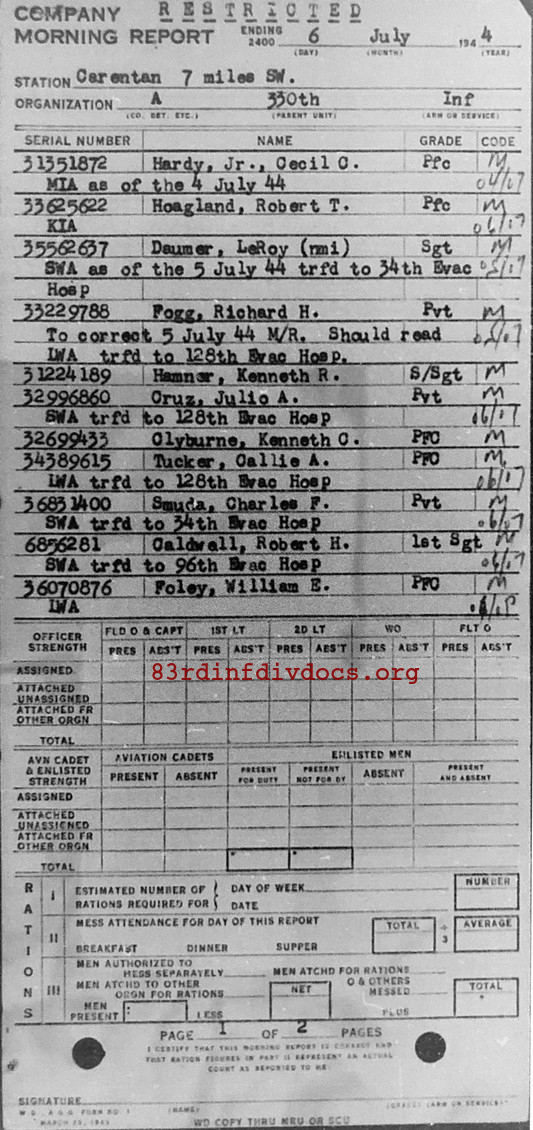 COMPANY RESTRICTED
MORNING REPORT ENDING 2400 6 July 1944
(DAY) (MONTH) (YEAR)
STATION Carentan 7 miles SW.
ORGANIZATION A 330th Inf
(CO. DET. ETC.) (PARENT UNIT) (ARM OR SERVICE)
SERIAL NUMBER NAME GRADE CODE
31351872 Hardy, Jr., Cecil C. Pfc M
MIA as of the 4 July 44 04/07
33625622 Hoagland, Robert T. Pfc M
KIA 06/07
35562637 Daumer, LeRoy (nmi) Sgt M
SWA as of the 5 July 44 trfd to 34th Evac 05/07
Hosp
33229788 Fogg, Richard H. Pvt M
To correct 5 July 44 M/R. Should read 05/07
LWA trfd to 128th Evac Hosp.
31224189 Hamner, Kenneth R. S/Sgt M
32996860 Cruz, Julio A. Pvt M
SWA trfd to 128th Evac Hosp 06/07
32699433 Clyburne, Kenneth C. PFC M
34389615 Tucker, Callie A. PFC M
LWA trfd to 128th Evac Hosp 06/07
36831400 Smuda, Charles F. Pvt M
SWA trfd to 34th Evac Hosp 06/07
6856281 Caldwell, Robert H. 1st Sgt M
SWA trfd to 96th Evac Hosp 06/07
36070876 Foley, William E. PFC M
LWA
OFFICER STRENGTH FLD O & CAPT 1ST LT 2D LT WO FLT O
PRES ABS'T PRES ABS'T PRES ABS'T PRES ABS'T PRES ABS'T
ASSIGNED 83rdinfdivdocs.org
ATTACHED UNASSIGNED
ATTACHED FR OTHER ORGN
TOTAL
AVN CADET & ENLISTED STRENGTH AVIATION CADETS ENLISTED MEN
PRESENT ABSENT PRESENT FOR DUTY PRESENT NOT FOR DY ABSENT PRESENT AND ABSENT
ASSIGNED
ATTACHED UNASSIGNED
ATTACHED FR OTHER ORGN
TOTAL
RATIONS
I ESTIMATED NUMBER OF RATIONS REQUIRED FOR DAY OF WEEK DATE NUMBER
II MESS ATTENDANCE FOR DAY OF THIS REPORT TOTAL ÷ 3 AVERAGE
BREAKFAST DINNER SUPPER
III MEN AUTHORIZED TO MESS SEPARATELY MEN ATCHD FOR RATIONS
MEN ATCHD TO OTHER ORGN FOR RATIONS NET O & OTHERS MESSED TOTAL
MEN PRESENT LESS PLUS
PAGE 1 OF 2 PAGES
I CERTIFY THAT THIS MORNING REPORT IS CORRECT AND
THAT RATION FIGURES IN PART II REPRESENT AN ACTUAL
COUNT AS REPORTED TO ME
SIGNATURE
(NAME) (GRADE) (ARM OR SERVICE)
W.D., A.G.O. FORM NO. 1
MARCH 23, 1943 WD COPY THRU MRU OR SCU